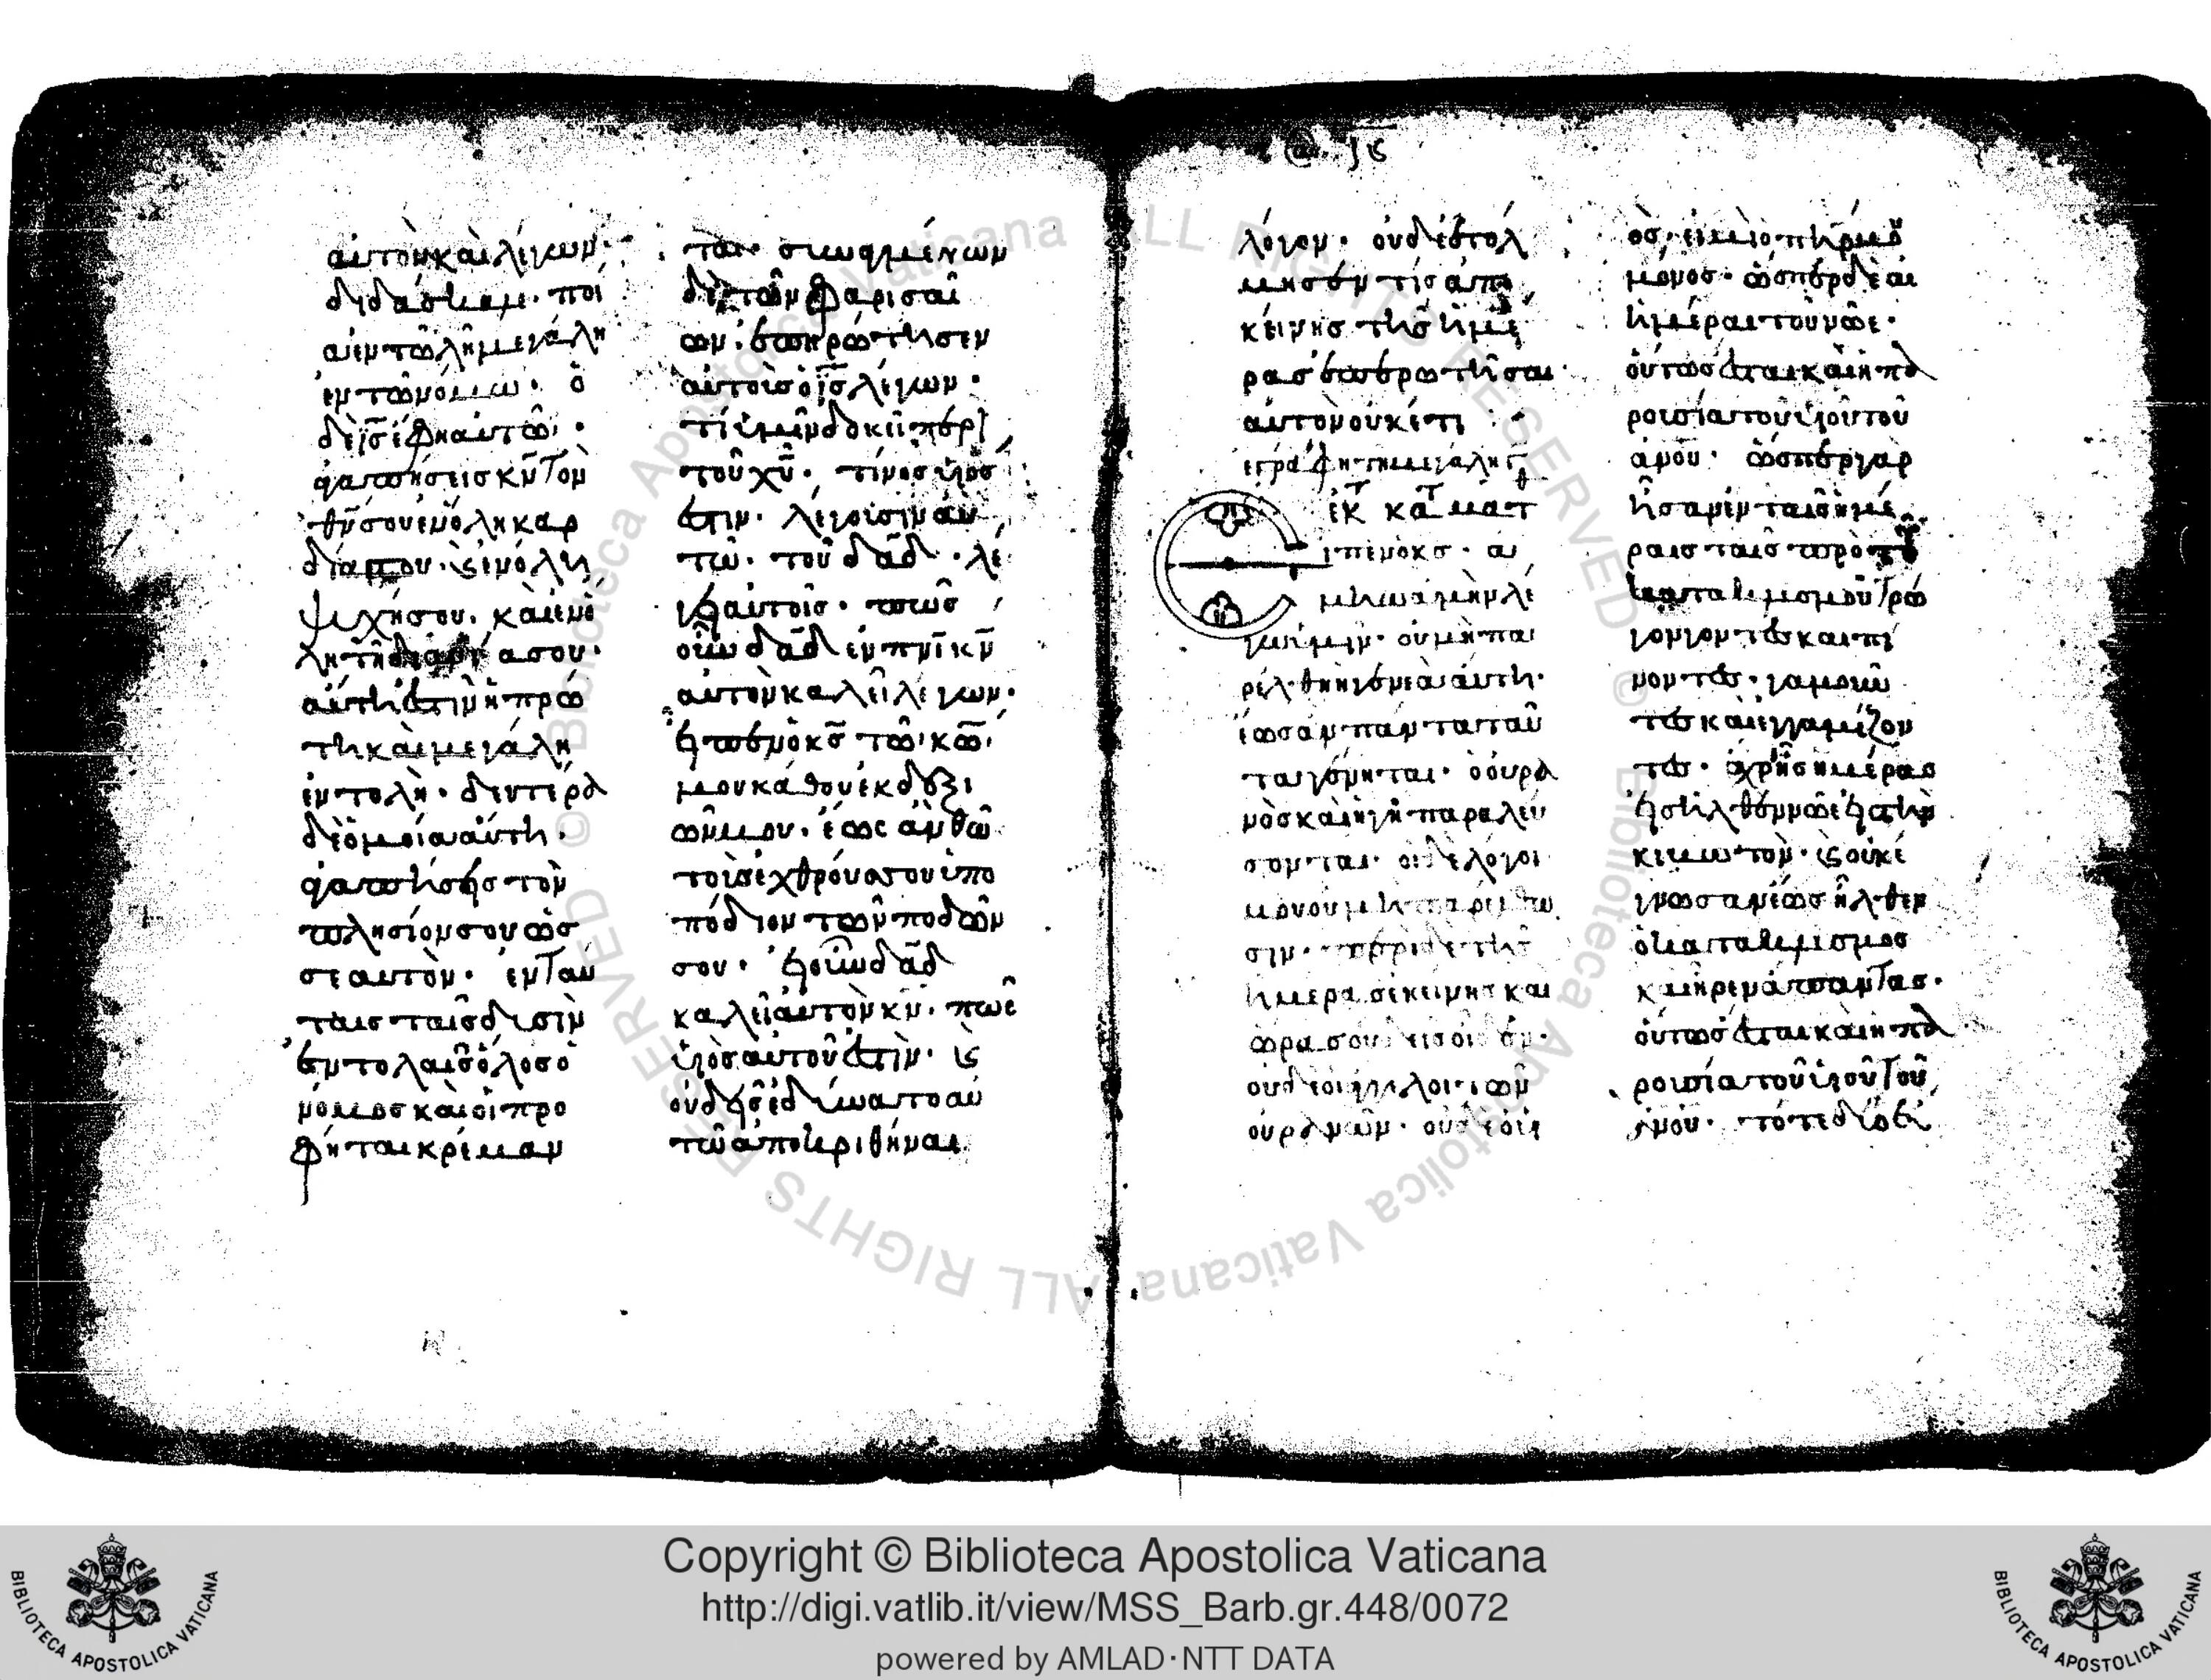 αυτὸν καὶ λέγων·
διδάσκαλε· ποί
α ἐντολὴ μεγάλη
ἐν τῶ νόμω· ὁ
δὲ ῑς̄ ἔφη αυτῶ·
ἀγαπήσεις κ̄ν̄ τὸν
θ̄ν̄ σου ἐν ὅλη καρ
δία σου· καὶ ἐν ὅλη
ψυχῆ σου· καὶ ἐν ὅ
λη τῆ διανοία σου·
αὕτη ἐστὶν ἡ πρώ
τη καὶ μεγάλη
ἐντολὴ· δευτέρα
δὲ ὁμοία αύτη·
ἀγαπήσης τὸν
πλησίον σου ὡς
σεαυτὸν· ἐν ταύ
ταις ταῖς δυσὶν
ἐντολαῖς ὅλος ὁ
νόμος καὶ οἱ προ
φῆται κρέμαν
ται· συνηγμένων
δὲ τῶν φαρισαί
ων· ἐπηρώτησεν
αὐτοὺς ὁ ῑς̄ λέγων·
τί ὑμῖν δοκεῖ περὶ
τοῦ χ̄ῡ· τίνος υἱός
ἐστιν· λέγουσιν αὐ
τῶ· τοῦ δᾱδ̄· λέ
γει αὐτοῖς· πῶς
οὖν δᾱδ̄ ἐν π̄ν̄ῑ κ̄ν̄
αὐτὸν καλεῖ λέγων·
εἶπεν ὁ κ̄ς̄ τῶ κ̄ω̄
μου κάθου ἐκ δεξι
ῶν μου· ἕως ἂν θῶ
τοὺς ἐχθρούς σου ὑπο
πόδιον τῶν ποδῶν
σου· εἰ οὖν δᾱδ̄
καλεῖ αὐτὸν κ̄ν̄· πῶς
υἱὸς αὐτοῦ ἐστὶν· καὶ
οὐδεὶς ἐδύνατο αὐ
τῶ ἀποκριθῆναι
λόγον· οὐδὲ ἐτόλ
μησέν τις ἀπ' ἐ
κείνης τῆς ἡμέ
ρας ἐπερωτῆσαι
αὐτὸν οὐκέτι
ἐκ κατ ματ
Εἶπεν ὁ κ̄ς̄· ἀ
μὴν ἀμὴν λέ
γω ὑμῖν· οὐ μὴ πα
ρέλθη ἡ γενεὰ αὕτη·
ἕως ἂν πάντα ταῦ
τα γένηται· ὁ οὐρα
νὸς καὶ ἡ γῆ παρελεύ
σονται· οἱ δὲ λόγοι
μου οὐ μὴ παρέλθω
σιν· περὶ δὲ τῆς
ἡμέρας ἐκείνης καὶ
ὥρας οὐδεὶς οἶδεν·
οὐδὲ οἱ ἄγγελοι τῶν
οὐρανῶν· οὐδὲ ὁ υἱ
ὸς· εἰ μὴ ὁ π̄η̄ρ̄ μου
μόνος· ὥσπερ δὲ αἱ
ἡμέραι τοῦ νῶε·
οὕτως ἔσται καὶ ἡ πα
ρουσία τοῦ υἱοῦ τοῦ
ᾱν̄ο̄ῡ· ὥσπερ γὰρ
ἦσαν ἐν ταῖς ἡμέ
ραις ταῖς πρὸ τοῦ
κατακλυσμοῦ τρώ
γοντες καὶ πί
νοντες· γαμοῦν
τες καὶ ἐγγαμίζον
τες· ἄχρι ἧς ἡμέρας
εἰσῆλθεν νῶε εἰς τὴν
κιβωτὸν· καὶ οὐκ ἔ
γνωσαν ἕως ἦλθεν
ὁ κατακλυσμὸς
καὶ ἦρεν ἅπαντας·
οὕτως ἔσται καὶ ἡ πα
ρουσία τοῦ υἱοῦ τοῦ
ᾱν̄ο̄ῡ· τότε δύο ἔ
Copyright © Biblioteca Apostolica Vaticana
http://digi.vatlib.it/view/MSS_Barb.gr.448/0072
powered by AMLAD·NTT DATA
BIBLIOTECA APOSTOLICA VATICANA
BIBLIOTECA APOSTOLICA VATICANA